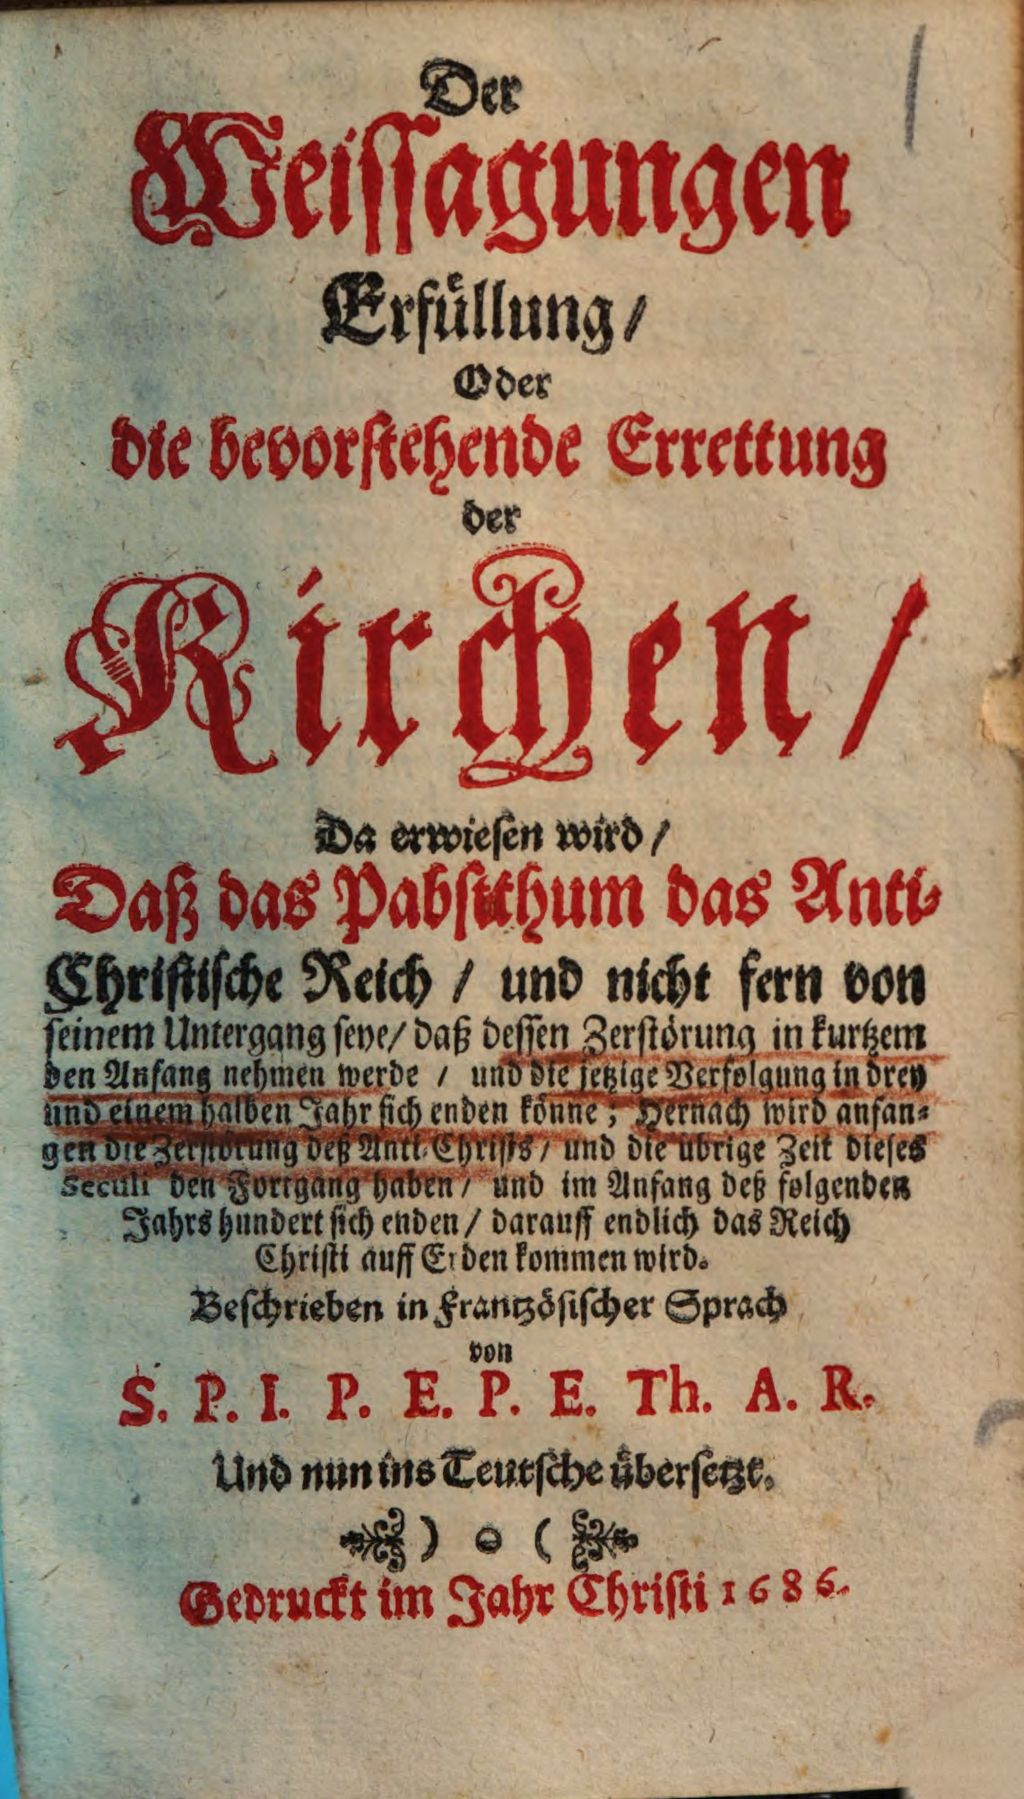 Der
Weissagungen
Erfüllung /
Oder
die bevorstehende Errettung
der
Kirchen /
Da erwiesen wird /
Daß das Pabstthum das Anti-
Christische Reich / und nicht fern von
seinem Untergang seye / daß dessen Zerstörung in kurtzem
den Anfang nehmen werde / und die jetzige Verfolgung in drey
und einem halben Jahr sich enden könne ; Hernach wird anfan-
gen die Zerstörung deß Anti-Christs / und die übrige Zeit dieses
Seculi den Fortgang haben / und im Anfang deß folgenden
Jahrs hundert sich enden / darauff endlich das Reich
Christi auff Erden kommen wird.
Beschrieben in Frantzösischer Sprach
von
S. P. I. P. E. P. E. Th. A. R.
Und nun ins Teutsche übersetzt.
Gedruckt im Jahr Christi 1686.